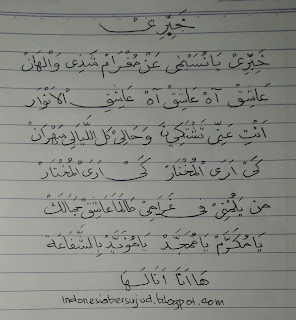 خَبِّرِيْ
خَبِّرِيْ يَا نُسَيْمَى عَنْ مُغْرَامْ شَذِى وَالْهَانْ
عَاشِقْ آهْ عَاشِقْ آهْ عَاشِقِ الْأَنْوَارَ
أَنْتِ عَنِّى تَشْتَكِيْ وَحَالِى كُلَّ اللَّيَالِى سَهْرَانْ
كَىْ أَرَى الْمُخْتَارْ كَىْ أَرَى الْمُخْتَارْ
مَنْ يَلُمْنِيْ فِى غَرَامِيْ طَالَمَا عَاشِقْ جَمَالَكْ
يَا مُكَرَّمْ يَا مُمَجَّدْ يَا مُؤَيَّدْ بِالشَّفَاعَةْ
هَا أَنَا أَنَا لَهَا
indonesiabersujud.blogpot.com